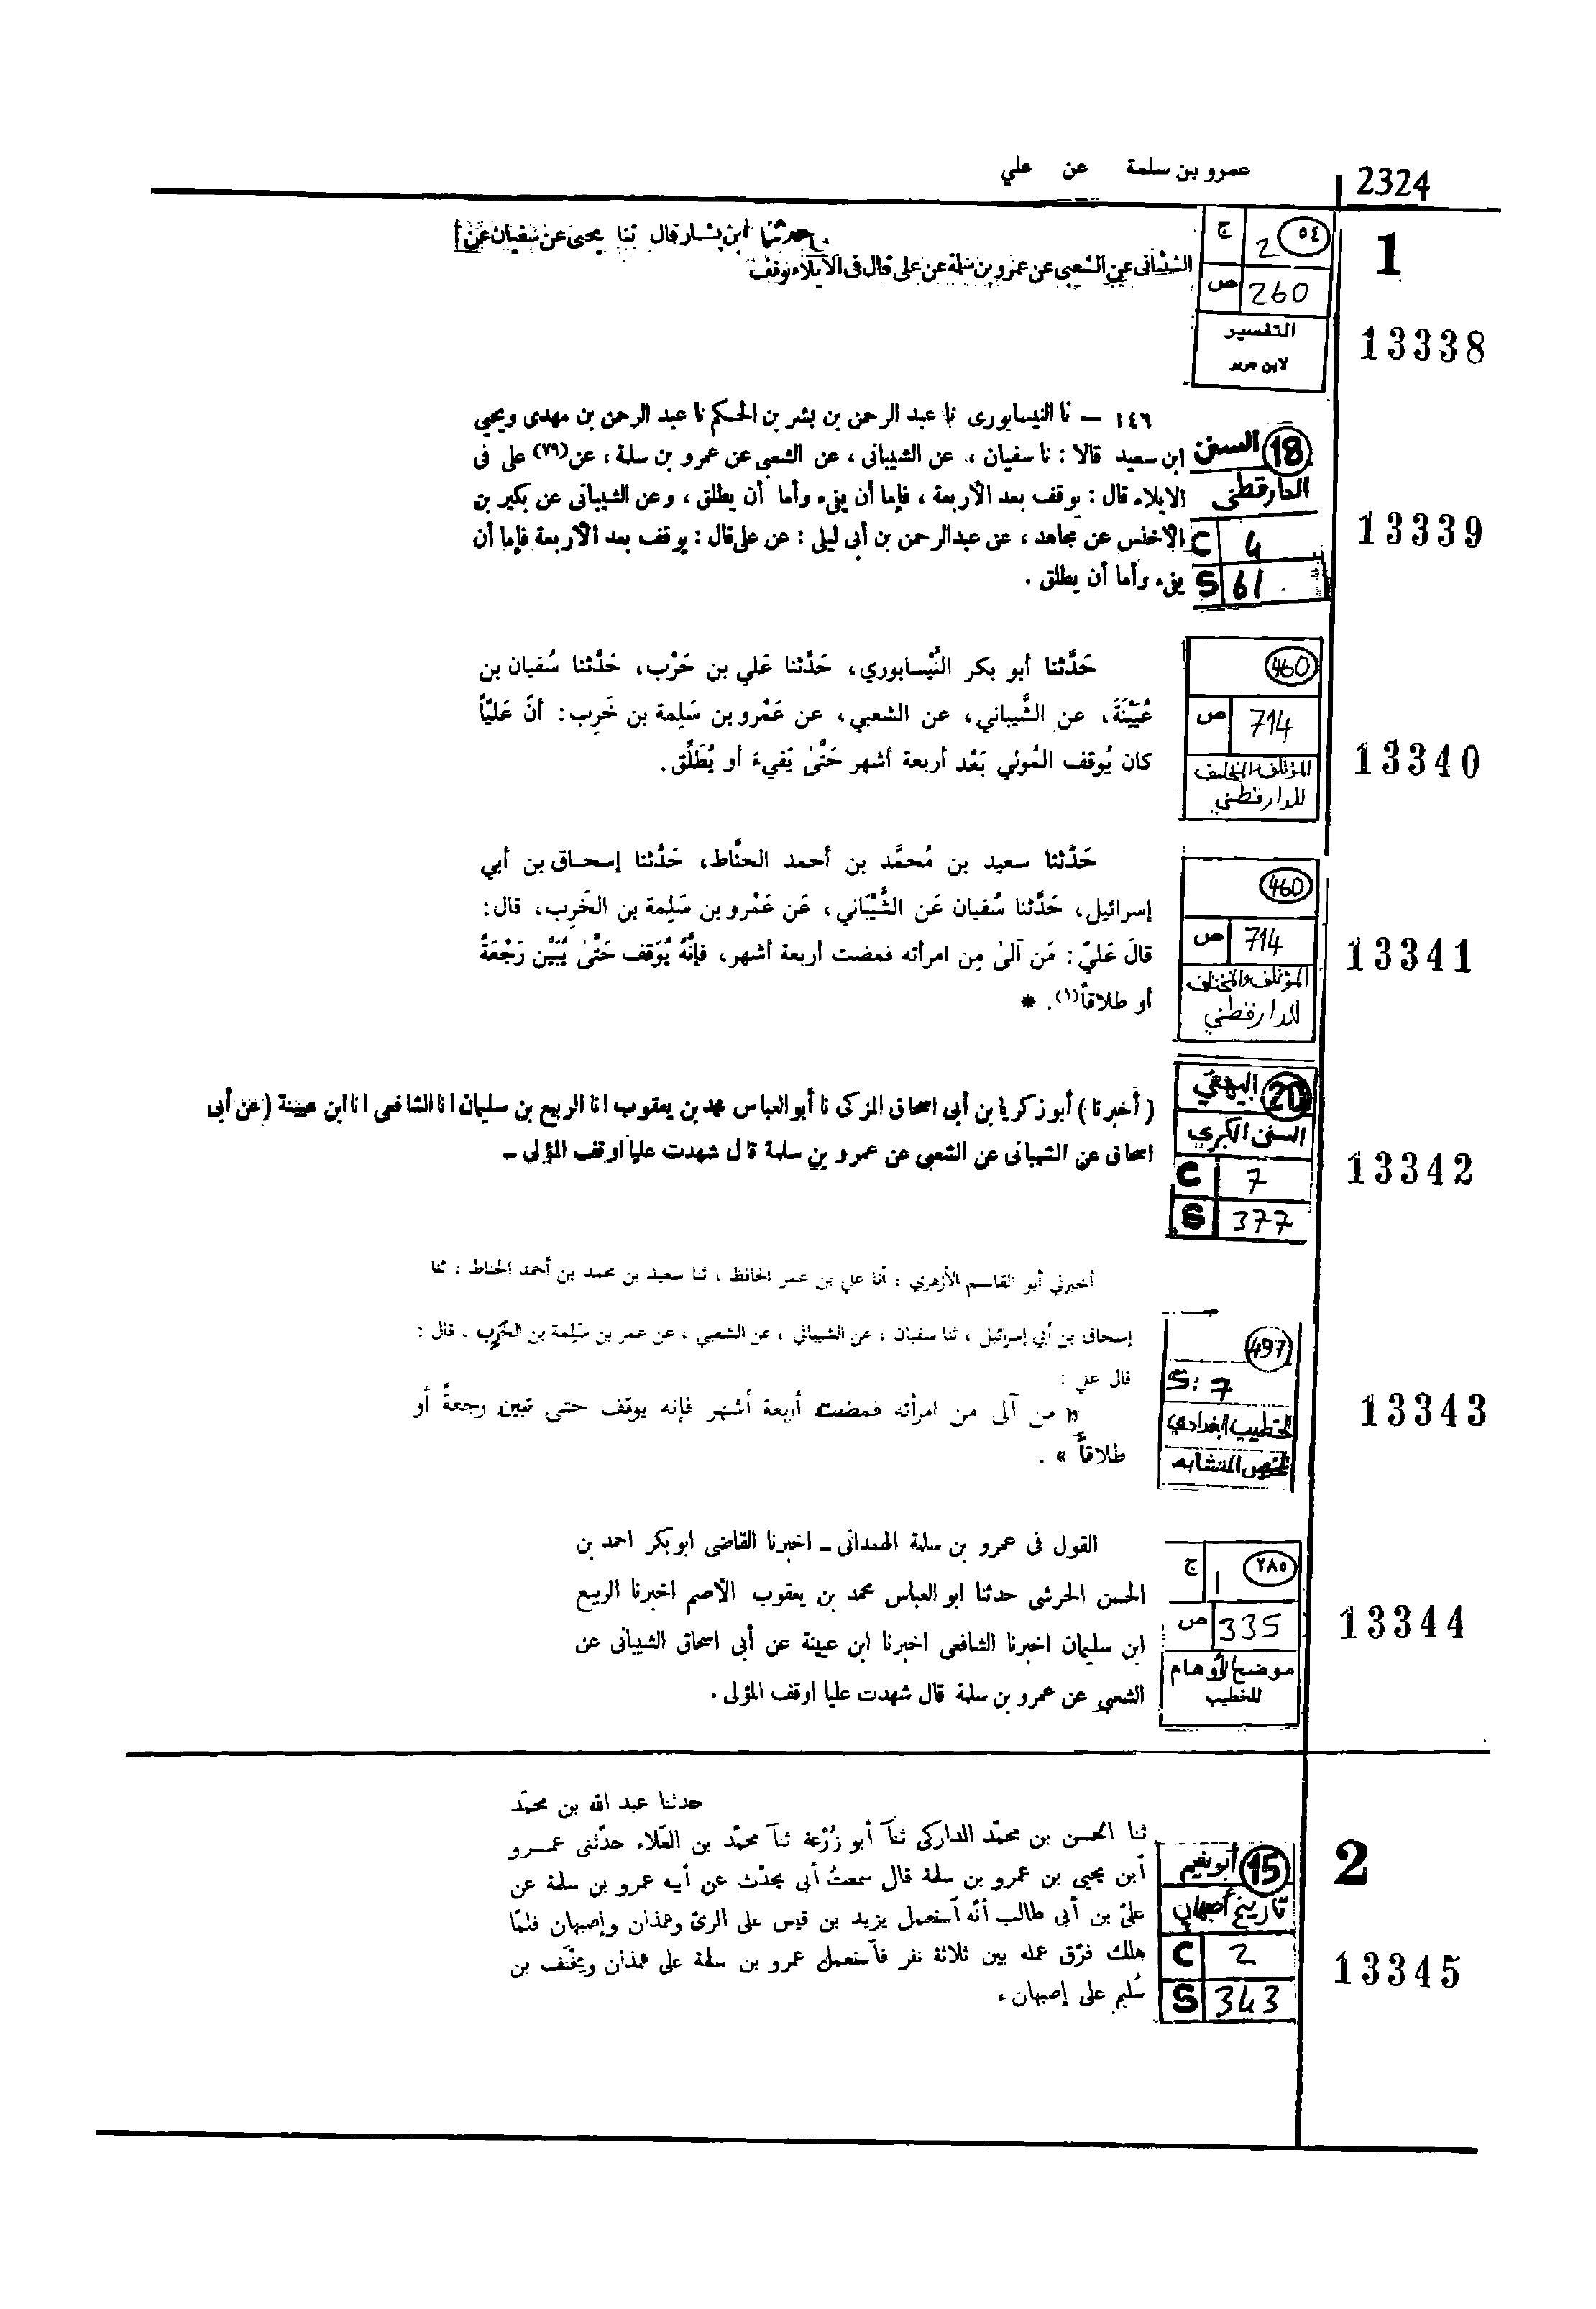 2324
عمرو بن سلمة عن علي
1
٥٤
ج 2
ص 260
التفسير
لابن جرير
13338
حدثنا ابن بشار قال ثنا يحيى عن سفيان عن
الشيباني عن الشعبى عن عمرو بن سلمة عن على قال فى الايلاء يوقف
18 السنن
الدارقطني
C 4
S 61
13339
١٤٦ — نا النيسابورى نا عبد الرحمن بن بشر بن الحكم نا عبد الرحمن بن مهدى ويحيى
ابن سعيد قالا : نا سفيان ، عن الشيبانى ، عن الشعبى عن عمرو بن سلمة ، عن (٧٩) على فى
الايلاء قال : يوقف بعد الأربعة ، فإما أن يفىء وأما أن يطلق ، وعن الشيبانى عن بكير بن
الأخنس عن مجاهد ، عن عبدالرحمن بن أبى ليلى : عن على قال : يوقف بعد الأربعة فإما أن
يفىء وأما أن يطلق .
460
ص 714
المؤتلف والمختلف
للدارقطني
13340
حَدَّثنا أبو بكر النَّيْسابوري، حَدَّثنا عَلي بن حَرْب، حَدَّثنا سُفيان بن
عُيَيْنَةَ، عن الشَّيباني، عن الشعبي، عن عَمْرو بن سَلِمة بن خَرِب: أنّ عَليّاً
كان يُوقف المُولي بَعْد أربعة أشهر حَتَّىٰ يَفيءَ أو يُطَلِّق.
460
ص 714
المؤتلف والمختلف
للدارقطني
13341
حَدَّثنا سعيد بن مُحمَّد بن أحمد الحنَّاط، حَدَّثنا إسحاق بن أبي
إسرائيل، حَدَّثنا سُفيان عَن الشَّيْبَاني، عَن عَمْرو بن سَلِمة بن الخَرِب، قال:
قالَ عَليّ: مَن آلىٰ مِن امرأته فمضت أربعة أشهر، فإنَّهُ يُوَقف حَتَّىٰ يُبَيِّن رَجْعَةً
أو طلاقاً(١). *
20 البيهقي
السنن الكبرى
C 7
S 377
13342
( أخبرنا ) أبو زكريا بن أبى اسحاق المزكى نا أبو العباس محمد بن يعقوب انا الربيع بن سليمان انا الشافعى انا ابن عيينة ( عن أبى
اسحاق عن الشيبانى عن الشعبى عن عمرو بن سلمة قال شهدت عليا اوقف المؤلى –
497
S: 7
الخطيب البغدادي
تلخيص المتشابه
13343
أخبرني أبو القاسم الأزهري ، أنا علي بن عمر الحافظ ، ثنا سعيد بن محمد بن أحمد الحناط ، ثنا
إسحاق بن أبي إسرائيل ، ثنا سفيان ، عن الشيباني ، عن الشعبي ، عن عمر بن سَلِمة بن الخَرِب ، قال :
قال علي :
« من آلى من امرأته فمضت أربعة أشهر فإنه يوقف حتى تبين رجعةً أو
طلاقاً » .
٢٨٥
ج 1
ص 335
موضح الأوهام
للخطيب
13344
القول فى عمرو بن سلمة الهمدانى – اخبرنا القاضى ابو بكر احمد بن
الحسن الحرشى حدثنا ابو العباس محمد بن يعقوب الأصم اخبرنا الربيع
ابن سليمان اخبرنا الشافعى اخبرنا ابن عيينة عن أبى اسحاق الشيبانى عن
الشعبى عن عمرو بن سلمة قال شهدت عليا اوقف المؤلى .
2
15 أبو نعيم
تاريخ أصبهان
C 2
S 343
13345
حدثنا عبد الله بن محمّد
ثنا الحسن بن محمّد الداركى ثنآ أبو زُرْعة ثنآ محمّد بن العَلاء حدّثنى عمرو
آبن يحيى بن عمرو بن سلمة قال سمعتُ أبى يحدّث عن أبيه عمرو بن سلمة عن
علىّ بن أبى طالب أنّه آستعمل يزيد بن قيس على الرىّ وهمذان وإصبهان فلمّا
هلك فرّق عمله بين ثلاثة نفر فآستعمل عمرو بن سلمة على همذان ويخْنَف بن
سُليم على إصبهان ،